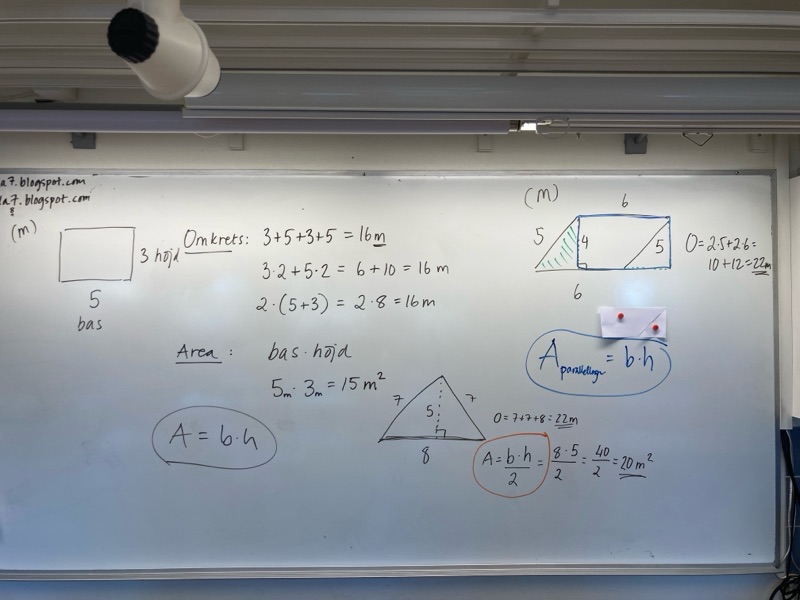 a7.blogspot.com
la7.blogspot.com
(m)
3 höjd
5
bas
Omkrets: 3+5+3+5 = 16m
3·2+5·2 = 6+10 = 16 m
2·(5+3) = 2·8 = 16m
Area: bas·höjd
5m · 3m = 15 m²
A = b·h
7
7
5
8
O = 7+7+8 = 22m
A = b·h/2 = 8·5/2 = 40/2 = 20 m²
(m)
6
5
4
5
6
O = 2·5+2·6 =
10+12 = 22m
A = b·h